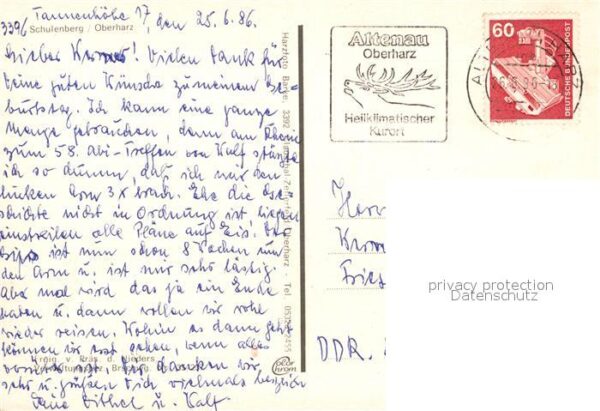 Tannenhöhe 17, den 25.6.86.
3396 Schulenberg / Oberharz
Lieber Werner! Vielen Dank für
Deine guten Wünsche zu meinem Ge-
burtstag. Ich kann eine ganze
Menge gebrauchen, denn am Rhein
zum 58. Abi-Treffen von Ralf stürzte
ich so dumm, daß ich mir den
linken Arm 3x brach. Ehe die Ge-
schichte nicht in Ordnung ist, liegen
einstweilen alle Pläne auf Eis! Der
Gips ist nun schon 8 Wochen um
den Arm u. ist mir sehr lästig.
Aber mal wird das ja ein Ende
haben u. dann wollen wir wohl
wieder reisen. Wohin es dann geht
können wir erst sehen, wenn alles
vorüber ist. Wir danken Dir
sehr u. grüßen Dich vielmals herzlich
Deine u. Ralf
Harzfoto Barke, 3392 Clausthal-Zellerfeld / Oberharz - Tel.
color
chrom
Altenau
Oberharz
Heilklimatischer
Kurort
60
DEUTSCHE BUNDESPOST
Herr
DDR.
privacy protection
Datenschutz